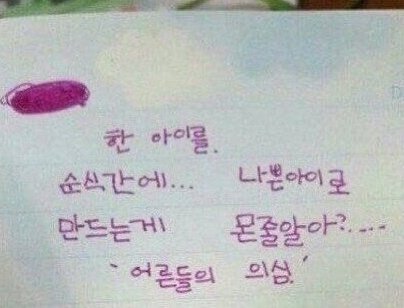 한 아이를.
순식간에... 나쁜아이로
만드는게 몬줄알아?....
'어른들의 의심.'